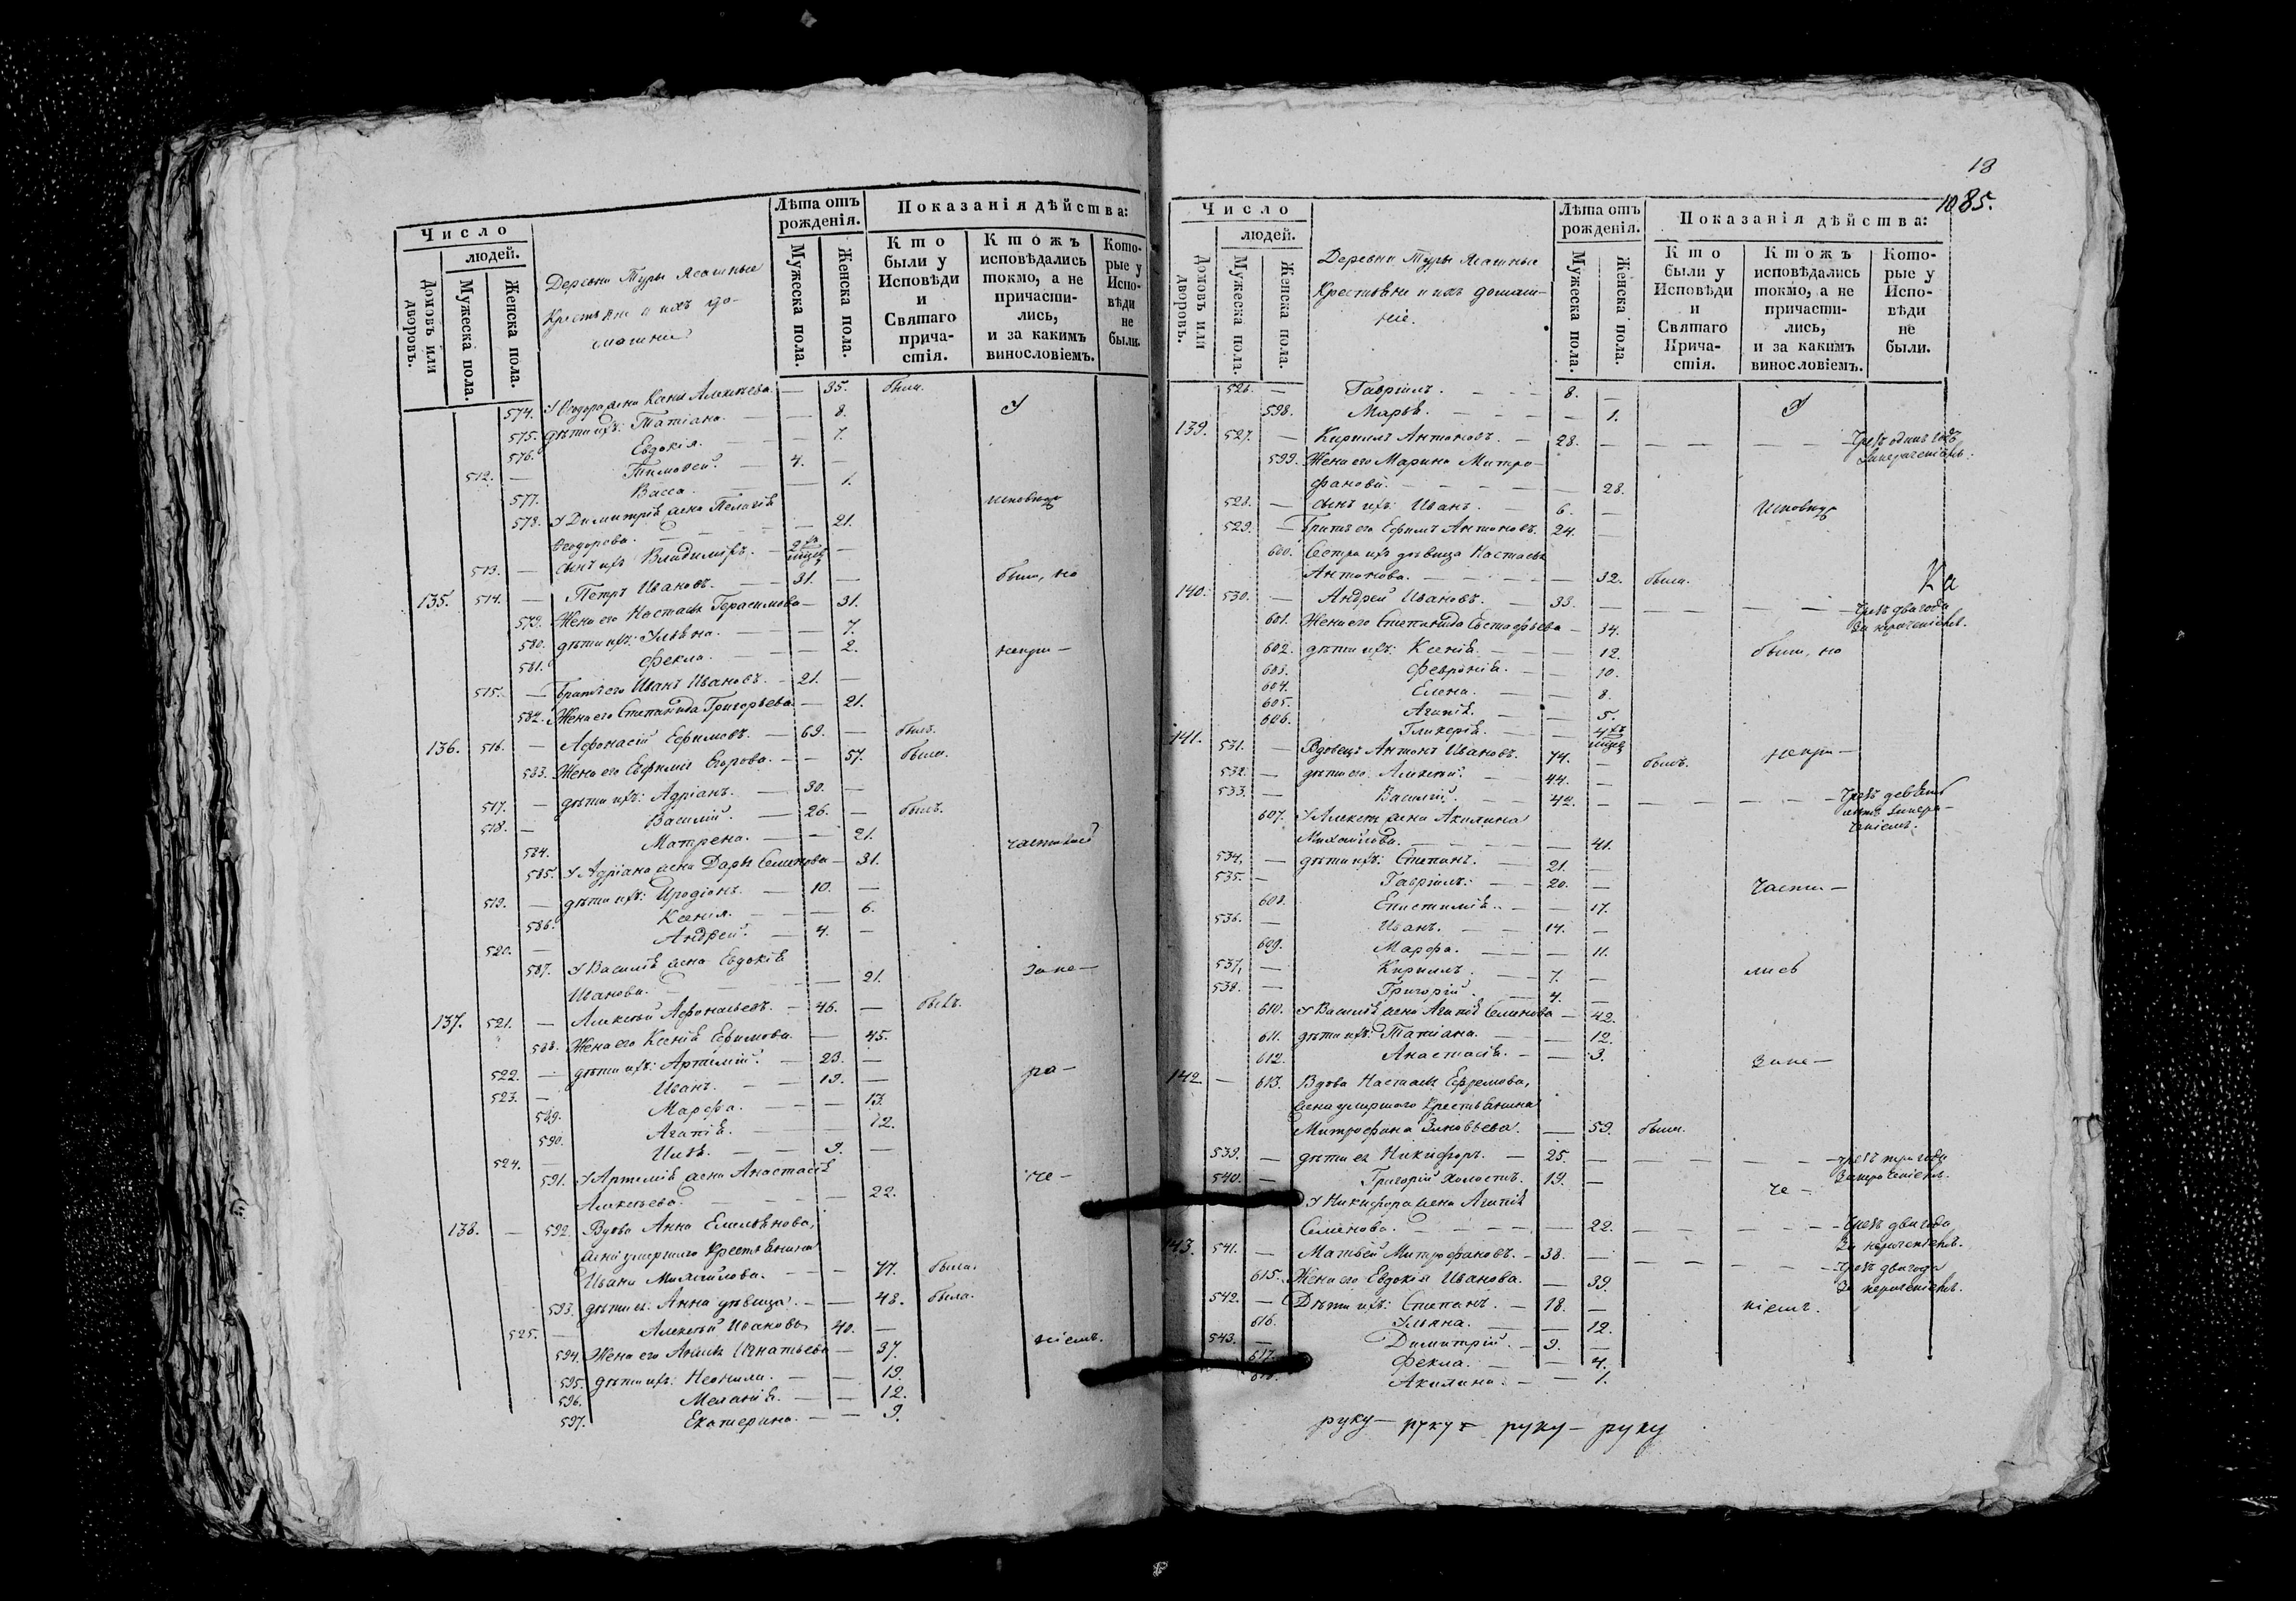 Число
людей.
Домовъ или дворовъ.
Мужеска пола.
Женска пола.
Деревни Туры Ясашные
Крестьяне и ихъ до-
машніе
Лѣта отъ рожденія.
Мужеска пола.
Женска пола.
Показанія дѣйства:
Кто были у Исповѣди и Святаго прича-стія.
Ктожъ исповѣдались токмо, а не причасти-лись, и за какимъ винословіемъ.
Кото-рые у Испо-вѣди не были.
574. У Ѳедора жена Ксенія Алексѣева. — 35. была.
575. дѣти ихъ: Татіана. — — 8.
576. Евдокія. — — 7.
512. — Тимоѳей. — 4. —
577. Васса. — — 1.
578. У Димитрія жена Пелагія
Ѳеодорова. — — 21.
513. — сынъ ихъ Владиміръ. — 2хъ мѣсяц —
135. 514. — Петръ Ивановъ. — 31. — были, но
579. Жена его Настасья Герасимова — 31.
580. дѣти ихъ: Ульяна. — — 7.
581. Фекла. — — 2. непри—
515. — братъ его Иванъ Ивановъ. — 21. —
582. Жена его Степанида Григорьева — 21.
136. 516. — Афонасій Ефимовъ. — 69. — былъ.
583. Жена его Евфимія Егорова. — — 57. была.
517. — дѣти ихъ: Адріанъ. — 30. —
518. — Василій. — 26. — былъ.
584. Матрена. — — 21.
585. У Адріана жена Дарья Семенова — 31.
519. — дѣти ихъ: Иродіонъ. — 10. —
586. Ксенія. — — 6.
520. — Андрей. — 4. —
587. У Василія жена Евдокія
Иванова. — — 21. за не—
137. 521. — Алексѣй Афонасьевъ. — 46. — былъ.
588. Жена его Ксенія Ефимова. — 45.
522. — дѣти ихъ: Артемій. — 23. —
523. — Иванъ. — 19. — ра—
589. Марфа. — — 13.
590. Агапія. — — 12.
524. — Илья. — 9. —
591. У Артемія жена Анастасія
Алексѣева. — — 22. че—
138. — 592. Вдова Анна Емельянова,
жена умершаго Крестьянина
Ивана Михайлова. — — 77. была.
593. дѣти ея: Анна дѣвица. — — 48. была.
525. — Алексѣй Ивановъ 40. —
594. Жена его Игнатьева — 37. ніемъ.
595. дѣти ихъ: Неонила. — — 19.
596. Меланія. — — 12.
597. Екатерина. — — 9.
18
1085.
Число
людей.
Домовъ или дворовъ.
Мужеска пола.
Женска пола.
Деревни Туры Ясашные
Крестьяне и ихъ домаш-
ніе.
Лѣта отъ рожденія.
Мужеска пола.
Женска пола.
Показанія дѣйства:
Кто были у Исповѣди и Святаго Прича-стія.
Ктожъ исповѣдались токмо, а не причасти-лись, и за какимъ винословіемъ.
Кото-рые у Испо-вѣди не были.
526. — Гавріилъ. — — 8. —
598. Марья. — — — 1.
139. 527. — Кирилъ Антоновъ. — 28. — — — — Чрезъ одинъ годъ
за нераченіемъ.
599. Жена его Марина Митро-
фанова. — — — 28.
528. — сынъ ихъ: Иванъ. — 6. —
529. — Братъ его Ефимъ Антоновъ. 24. —
600. Сестра ихъ дѣвица Настасья
Антонова. — — — 32. была.
Ка
140. 530. — Андрей Ивановъ. — 33. — — — — Чрезъ два года
за нераченіемъ.
601. Жена его Степанида Евстафьева — 34.
602. дѣти ихъ: Ксенія. — — 12. были, но
603. Февронія. — — 10.
604. Елена. — — 8.
605. Агапія. — — 5.
606. Гликерія. — — 4хъ мѣсяц
141. 531. — Вдовецъ Антонъ Ивановъ. 74. — былъ. непри—
532. — дѣти его: Алексѣй. — 44. —
533. — Василій. — — 42. — — — — Чрезъ девять
лѣтъ за нера-
ченіемъ.
607. У Алексѣя жена Акилина
Михайлова. — — — 41.
534. — дѣти ихъ: Степанъ. — 21. —
535. — Гавріилъ. — — 20. — части—
608. Епистимія. — — 17.
536. — Иванъ. — — 14. —
609. Марфа. — — — 11.
537. — Кириллъ. — — 7. — лись
538. — Григорій. — 4. —
610. У Василія жена Агапія Семенова — 42.
611. дѣти ихъ: Татіана. — — 12.
612. Анастасія. — — 3. за не—
142. — 613. Вдова Настасья Ефремова,
жена умершаго Крестьянина
Митрофана Зиновьева. — 59. была.
539. — дѣти ея Никифоръ. — 25. — — — — Чрезъ три года
за нераченіемъ.
540. — Григорій холостъ. 19. —
У Никифора жена Агапія
Семенова. — — — 22. — — — Чрезъ два года
за нераченіемъ.
143. 541. — Матвей Митрофановъ. — 38. — — — — Чрезъ два года
за нераченіемъ.
615. Жена его Евдокія Иванова. — 39.
542. — Дѣти ихъ: Степанъ. — 18. — ніемъ.
616. Ульяна. — — 12.
543. — Димитрій. — 9. —
617. Фекла. — — 4.
Акилина. — — 1.
руку — руку — руку — руку